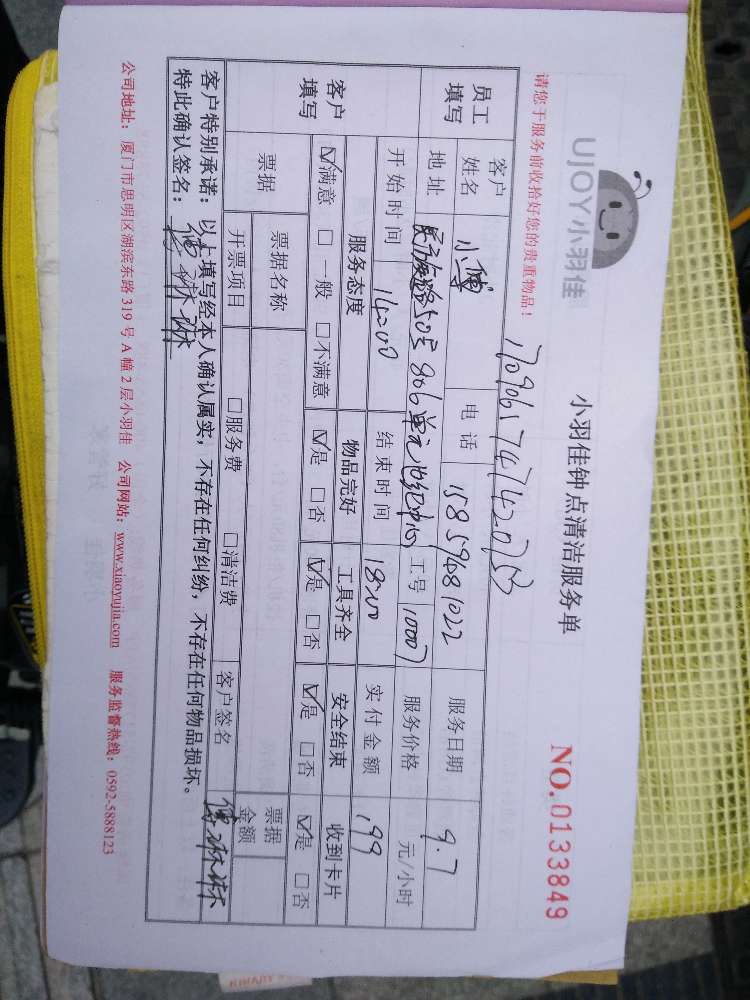 UJOY小羽佳
小羽佳钟点清洁服务单
NO.0133849
请您于服务前收拾好您的贵重物品！
17090657474420753
员工填写
客户姓名 小傅 电话 15859681022 服务日期 9.7
地址 民族路50号806单元世纪中心 工号 10007 服务价格 元/小时
开始时间 14:00 结束时间 18:00 实付金额 199
客户填写
服务态度 物品完好 工具齐全 安全结束 收到卡片
☑满意 □一般 □不满意 ☑是 □否 ☑是 □否 ☑是 □否 ☑是 □否
票据 票据名称 票据金额
开票项目 □服务费 □清洁费 客户签名 傅琳琳
客户特别承诺：以上填写经本人确认属实，不存在任何纠纷，不存在任何物品损坏。
特此确认签名：傅琳琳
公司地址：厦门市思明区湖滨东路319号A幢2层小羽佳 公司网站：www.xiaoyujia.com 服务监督热线：0592-5888123